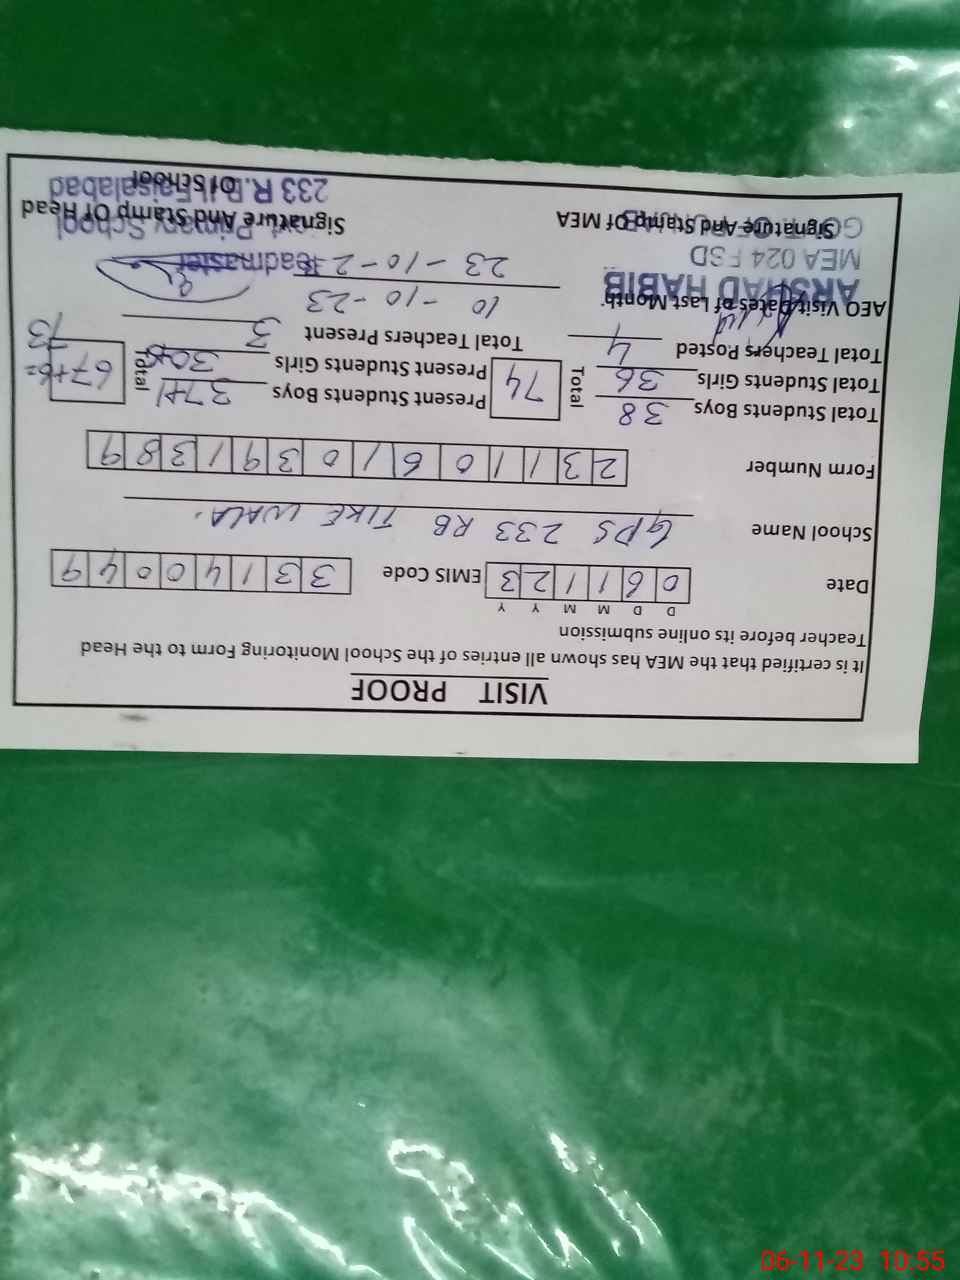 VISIT PROOF
It is certified that the MEA has shown all entries of the School Monitoring Form to the Head
Teacher before its online submission
D D M M Y Y
Date 0 6 1 1 2 3 EMIS Code 3 3 1 4 0 0 4 9
School Name GPS 233 RB TIKE WALA.
Form Number 2 3 1 1 0 6 1 0 3 9 1 3 8 9
Total Students Boys 38 Total 74 Present Students Boys 37+1 Total 67+6=
Total Students Girls 36 Present Students Girls 30+5 73
Total Teachers Posted 4 Total Teachers Present 3
AEO Visit Dates of Last Month 10-10-23
23-10-2
ARSHAD HABIB
MEA 024 FSD
Headmaster
Signature And Stamp Of MEA Signature And Stamp Of Head
Primary School
Of School
233 R.B Faisalabad
06-11-23 10:55